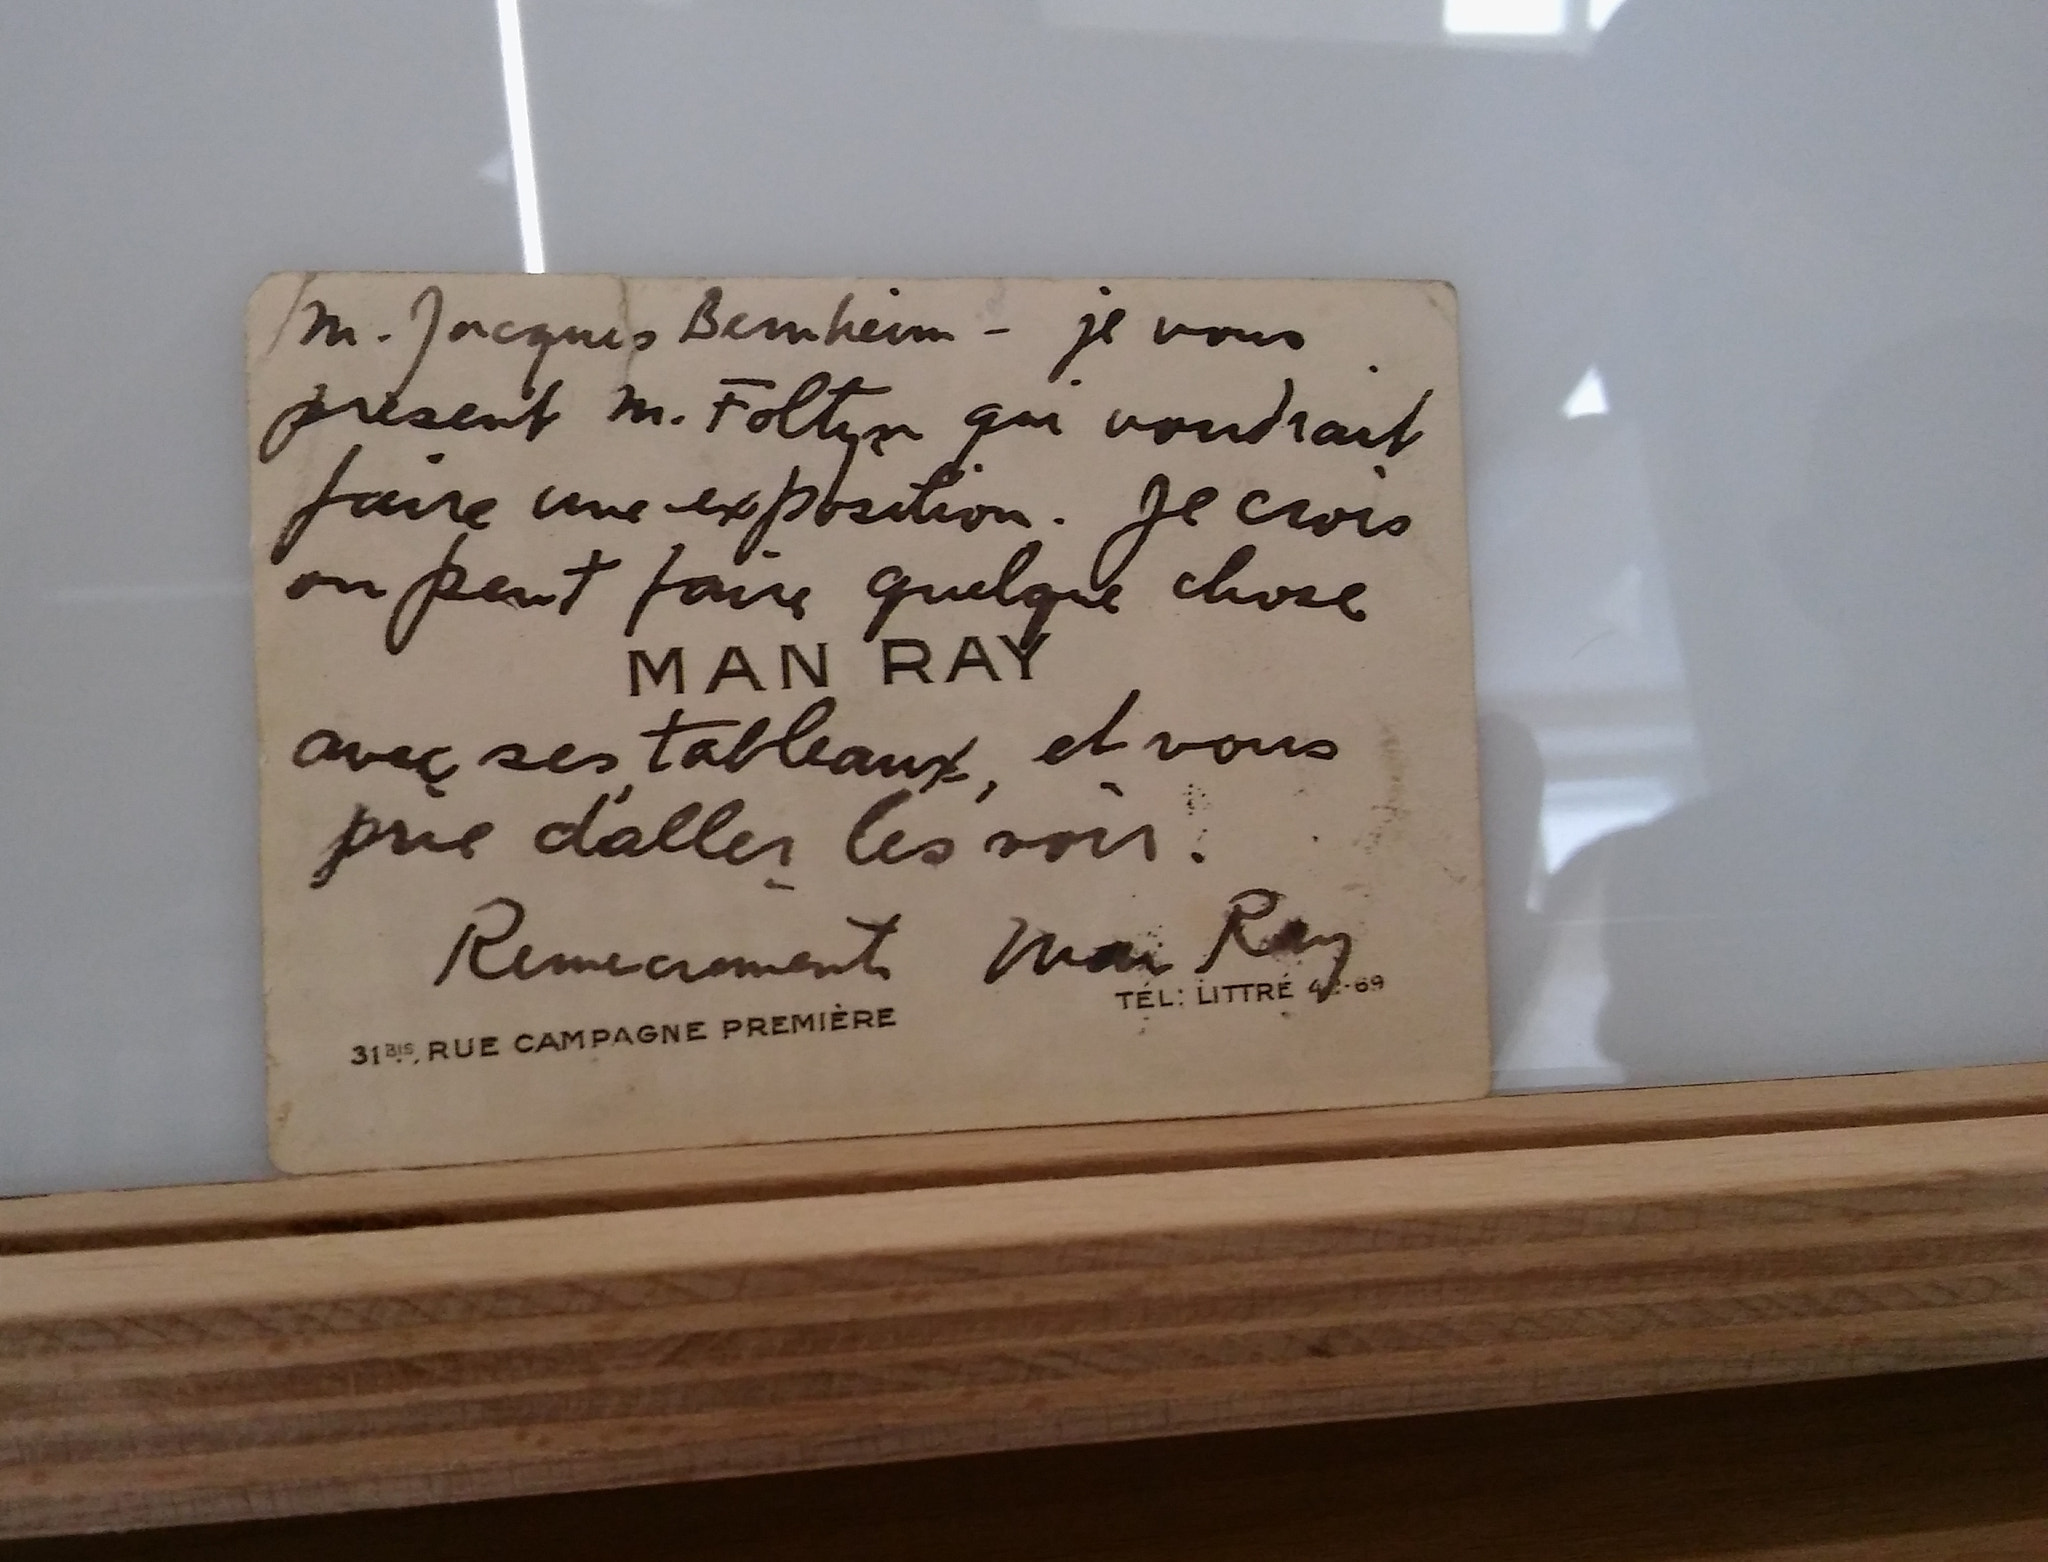 M. Jacques Bernheim - je vous
present M. Foltyn qui voudrait
faire une exposition. Je crois
on peut faire quelque chose
MAN RAY
avec ses tableaux, et vous
prie d'aller les voir.
Remercrements Man Ray
TÉL: LITTRÉ -69
31BIS, RUE CAMPAGNE PREMIÈRE